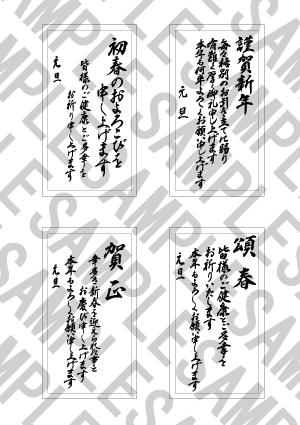 謹賀新年
毎々格別のお引き立てに賜り
有難く厚く御礼申し上げます
本年も何卒よろしくお願い申し上げます
元旦
初春のおよろこびを
申し上げます
皆様のご健康とご多幸を
お祈り申し上げます
元旦
頌春
皆様のご健康とご多幸を
お祈りいたします
本年もよろしくお願い申し上げます
元旦
賀正
幸多き新春を迎えられた事と
お慶び申し上げます
本年もよろしくお願い申し上げます
元旦
SAMPLE